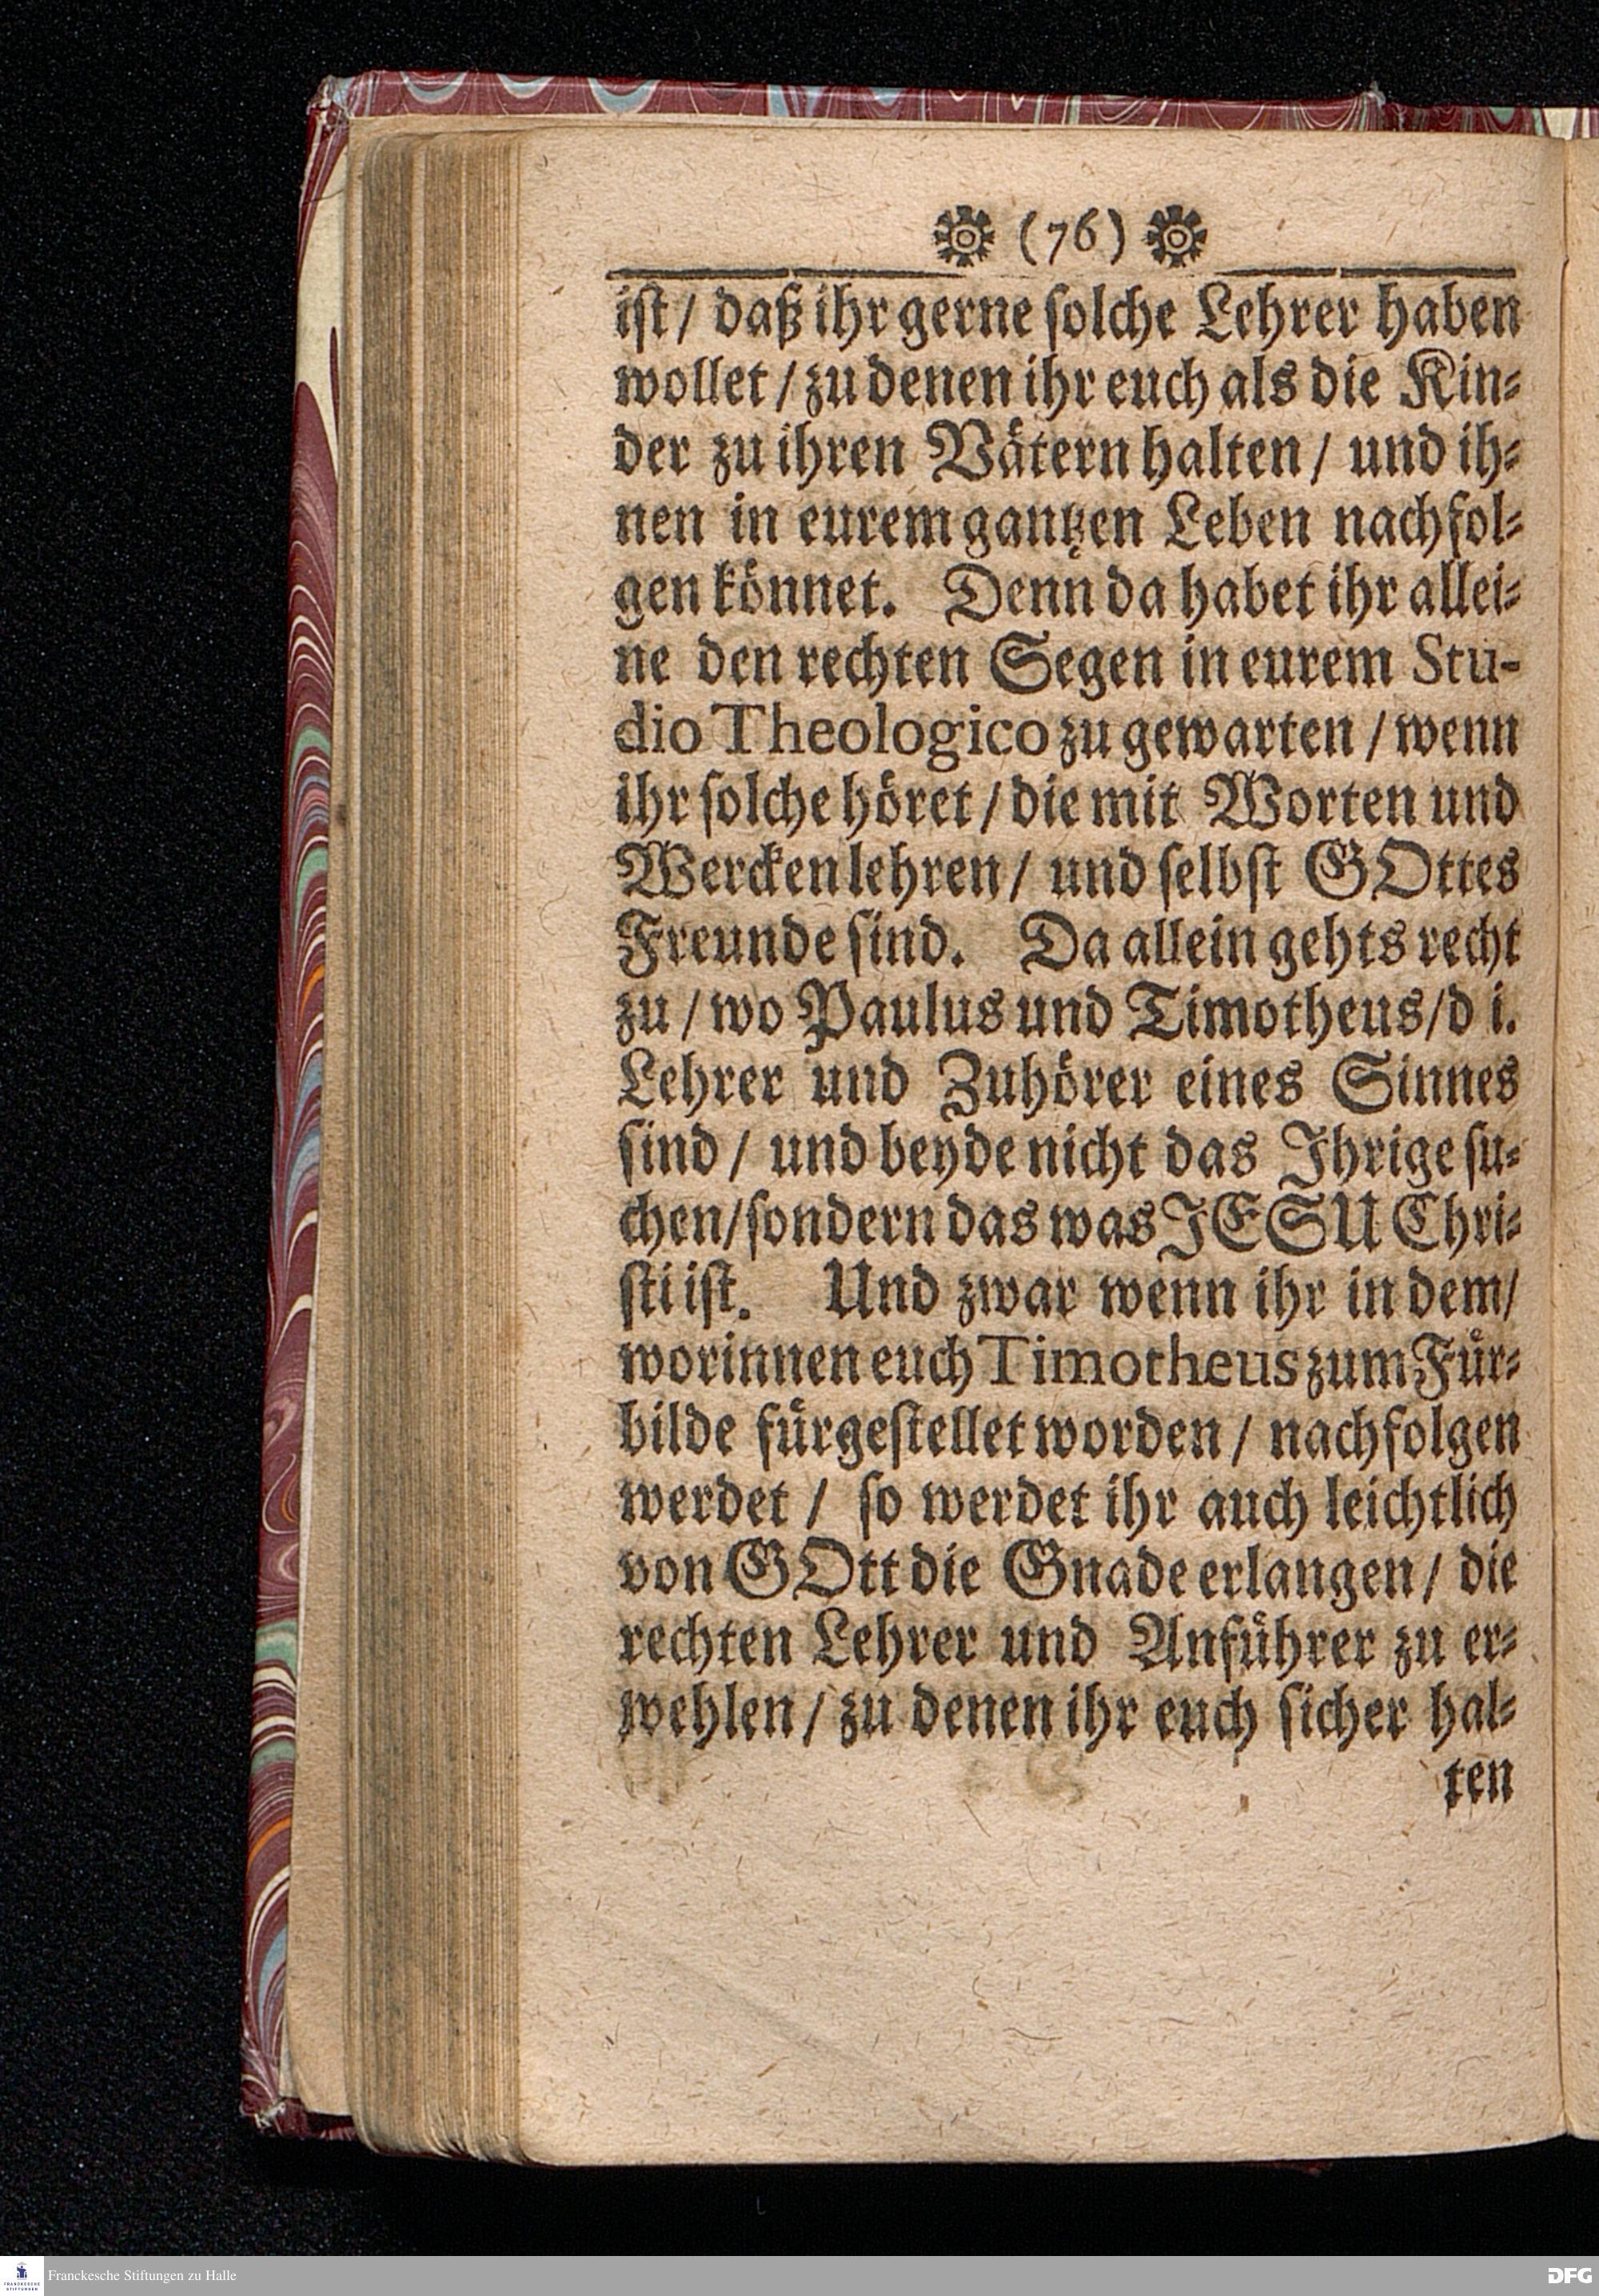 (76)
ist / daß ihr gerne solche Lehrer haben
wollet / zu denen ihr euch als die Kin-
der zu ihren Vätern halten / und ih-
nen in eurem gantzen Leben nachfol-
gen könnet. Denn da habet ihr allei-
ne den rechten Segen in eurem Stu-
dio Theologico zu gewarten / wenn
ihr solche höret / die mit Worten und
Wercken lehren / und selbst GOttes
Freunde sind. Da allein gehts recht
zu / wo Paulus und Timotheus / d i.
Lehrer und Zuhörer eines Sinnes
sind / und beyde nicht das Ihrige su-
chen / sondern das was JESU Chri-
sti ist. Und zwar wenn ihr in dem /
worinnen euch Timotheus zum Für-
bilde fürgestellet worden / nachfolgen
werdet / so werdet ihr auch leichtlich
von GOtt die Gnade erlangen / die
rechten Lehrer und Anführer zu er-
wehlen / zu denen ihr euch sicher hal-
ten
FRANCKESCHE STIFTUNGEN
Franckesche Stiftungen zu Halle
DFG